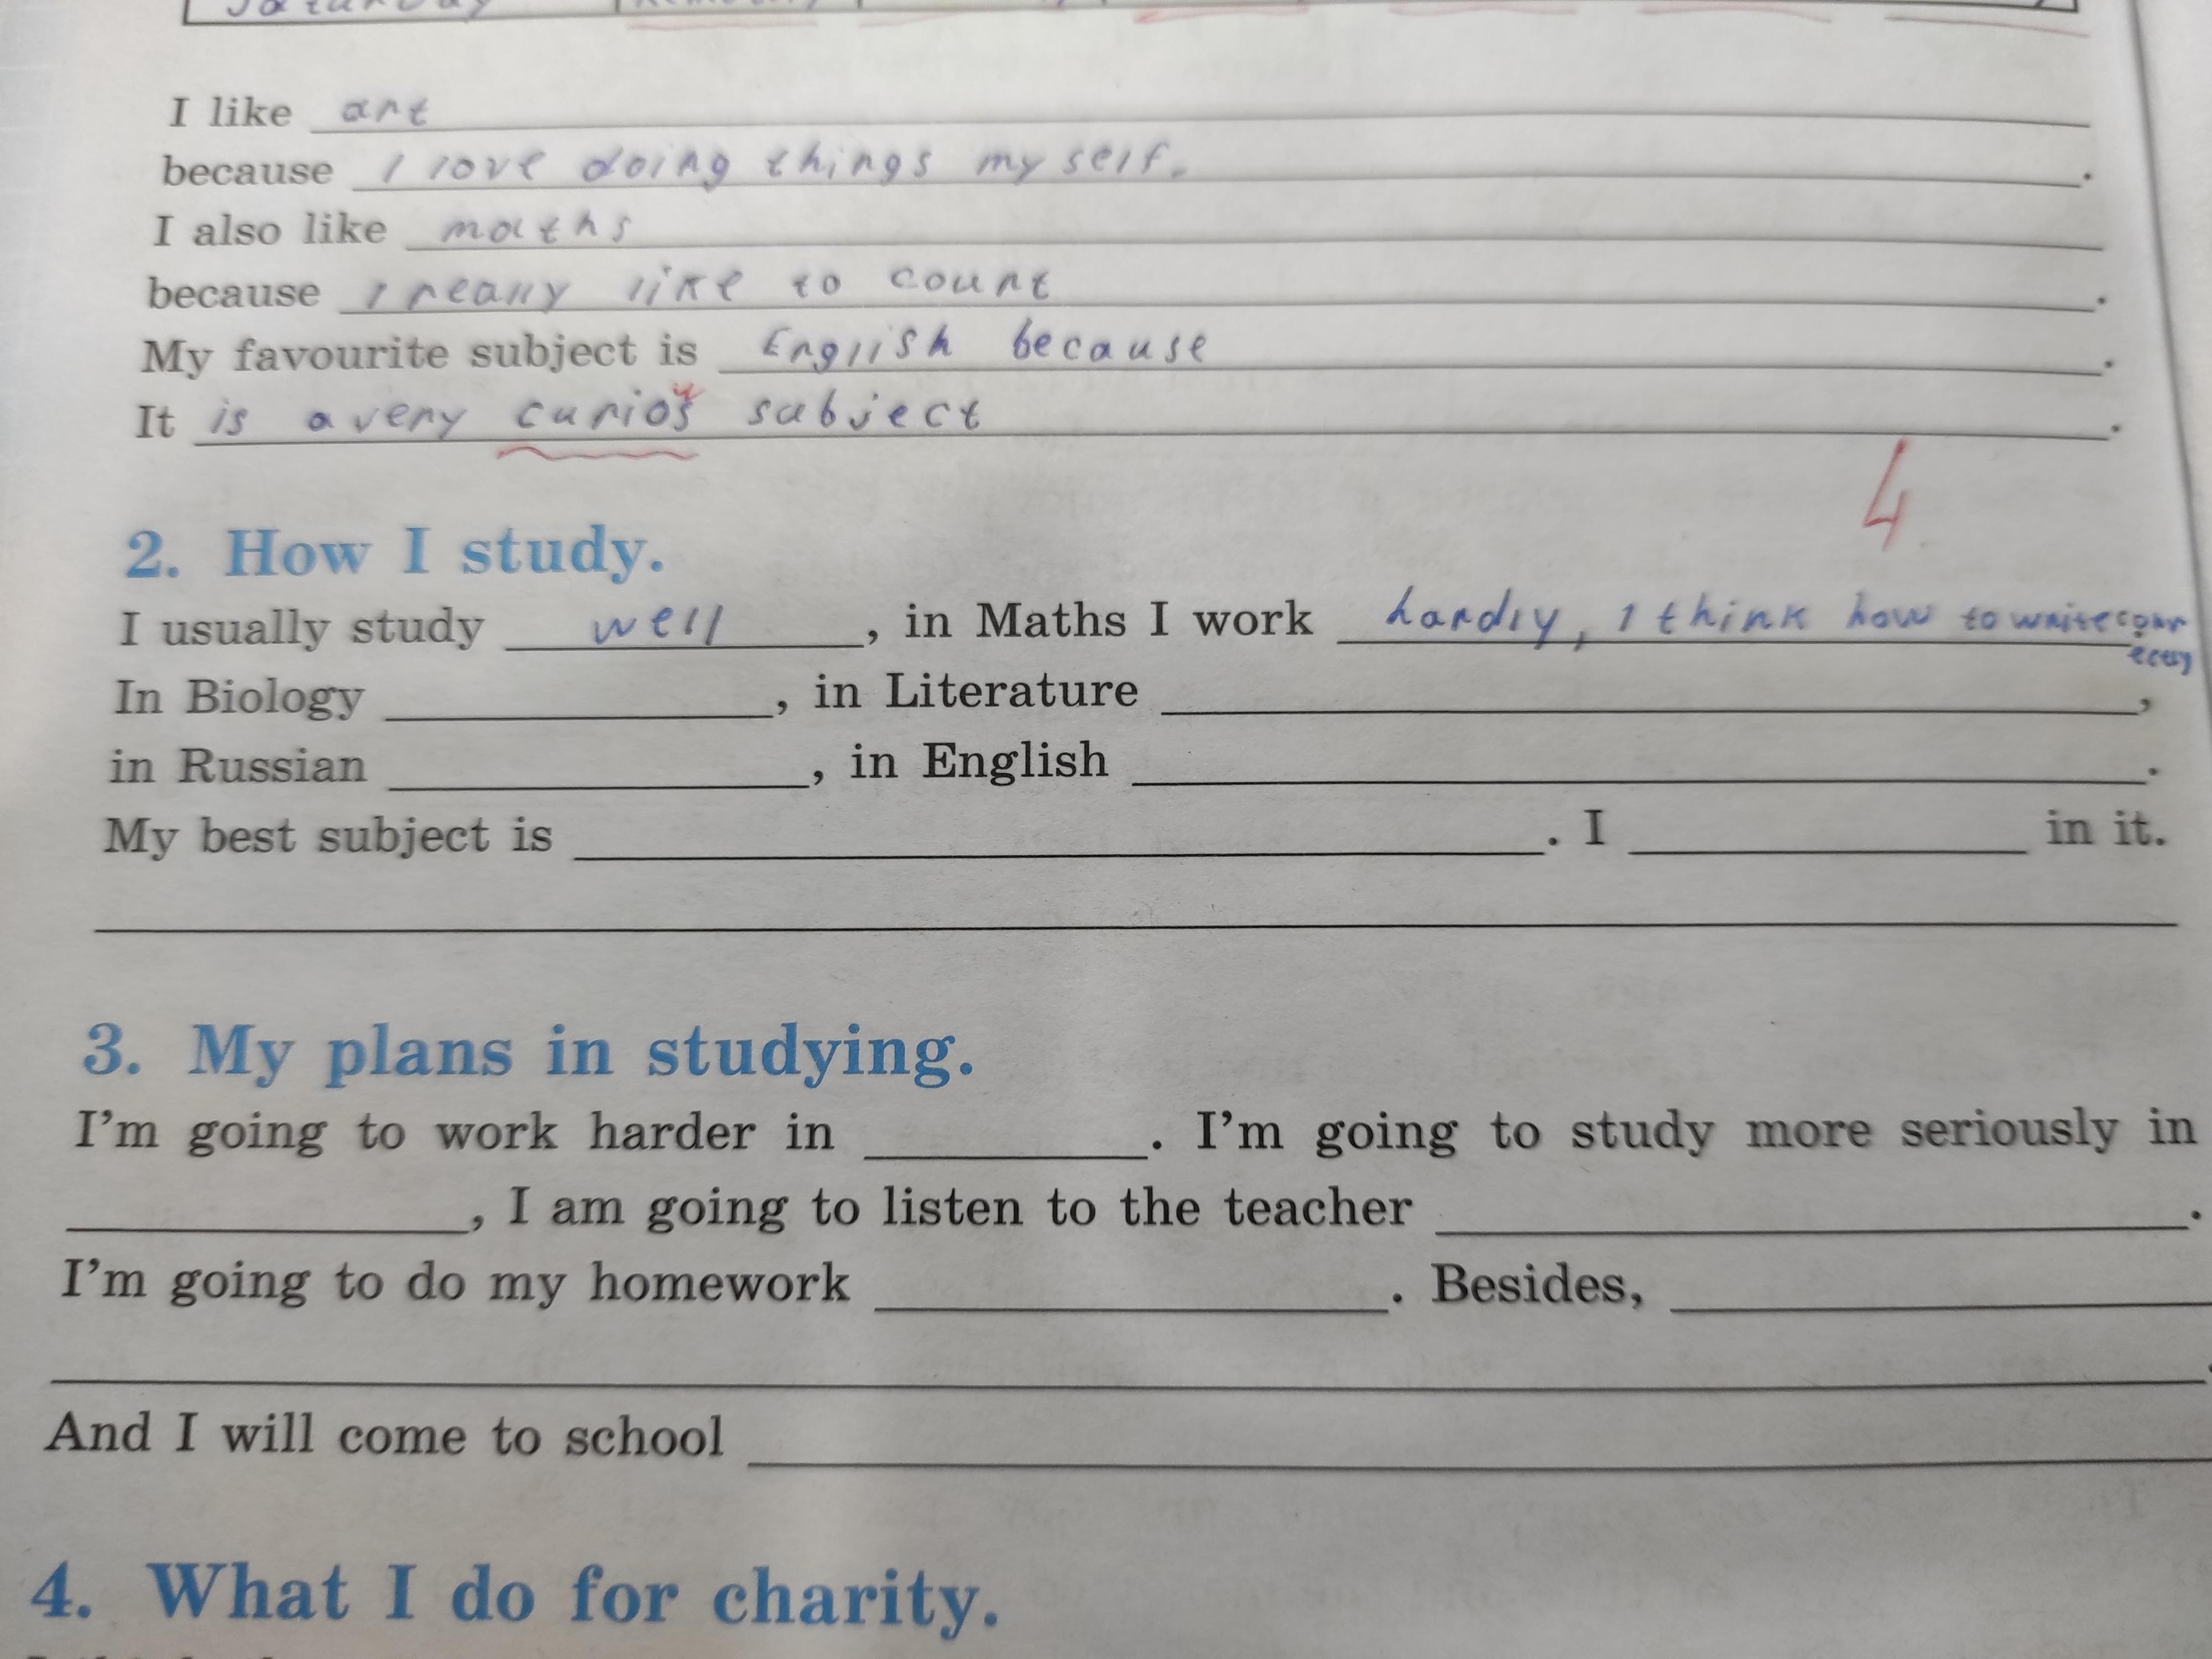 Saturday
I like art
because I love doing things my self.
I also like maths
because I really like to count.
My favourite subject is English because.
It is a very curios subject.
4
2. How I study.
I usually study well, in Maths I work hardly, I think how to write
In Biology, in Literature,
in Russian, in English.
My best subject is. I in it.
3. My plans in studying.
I'm going to work harder in. I'm going to study more seriously in
, I am going to listen to the teacher.
I'm going to do my homework. Besides,
.
And I will come to school
4. What I do for charity.